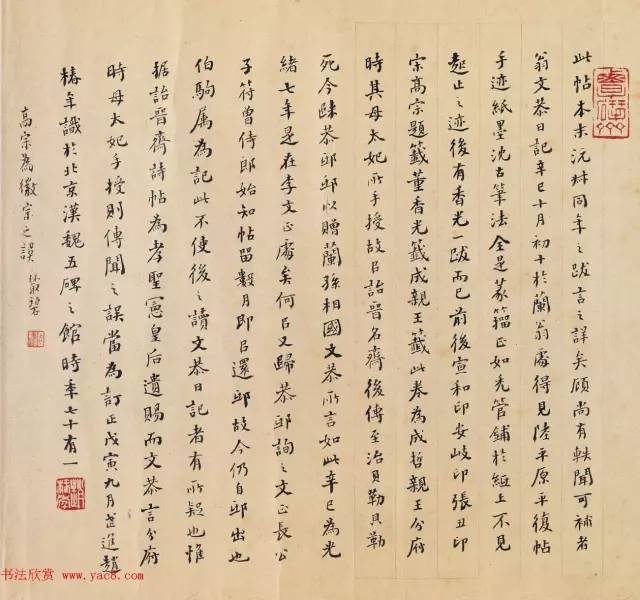 此帖本末沅叔同年之跋言之詳矣顧尚有軼聞可補者
翁文恭日記辛巳十月初十於蘭翁處得見陸平原平復帖
手迹紙墨沈古筆法全是篆籀正如禿管鋪於紙上不見
起止之迹後有香光一跋而已前後宣和印安岐印張丑印
宗高宗題籤董香光籤成親王籤此卷為成哲親王分府
時其母太妃所手授故以詒晉名齋後傳至治貝勒貝勒
死今歸恭邸邸以贈蘭孫相國文恭所言如此辛巳為光
緒七年是在李文正處矣何以又歸恭邸詢之文正長公
子符曾侍郎始知帖留數月即以還邸故今仍自邸出也
伯駒属為記此不使後之讀文恭日記者有所疑也惟
據詒晉齋詩帖為孝聖憲皇后遺賜而文恭言分府
時母太妃手授則傳聞之誤當為訂正戊寅九月武進趙
椿年識於北京漢魏五碑之館時年七十有一
高宗為徽宗之誤
书法欣赏
www.yac8.com